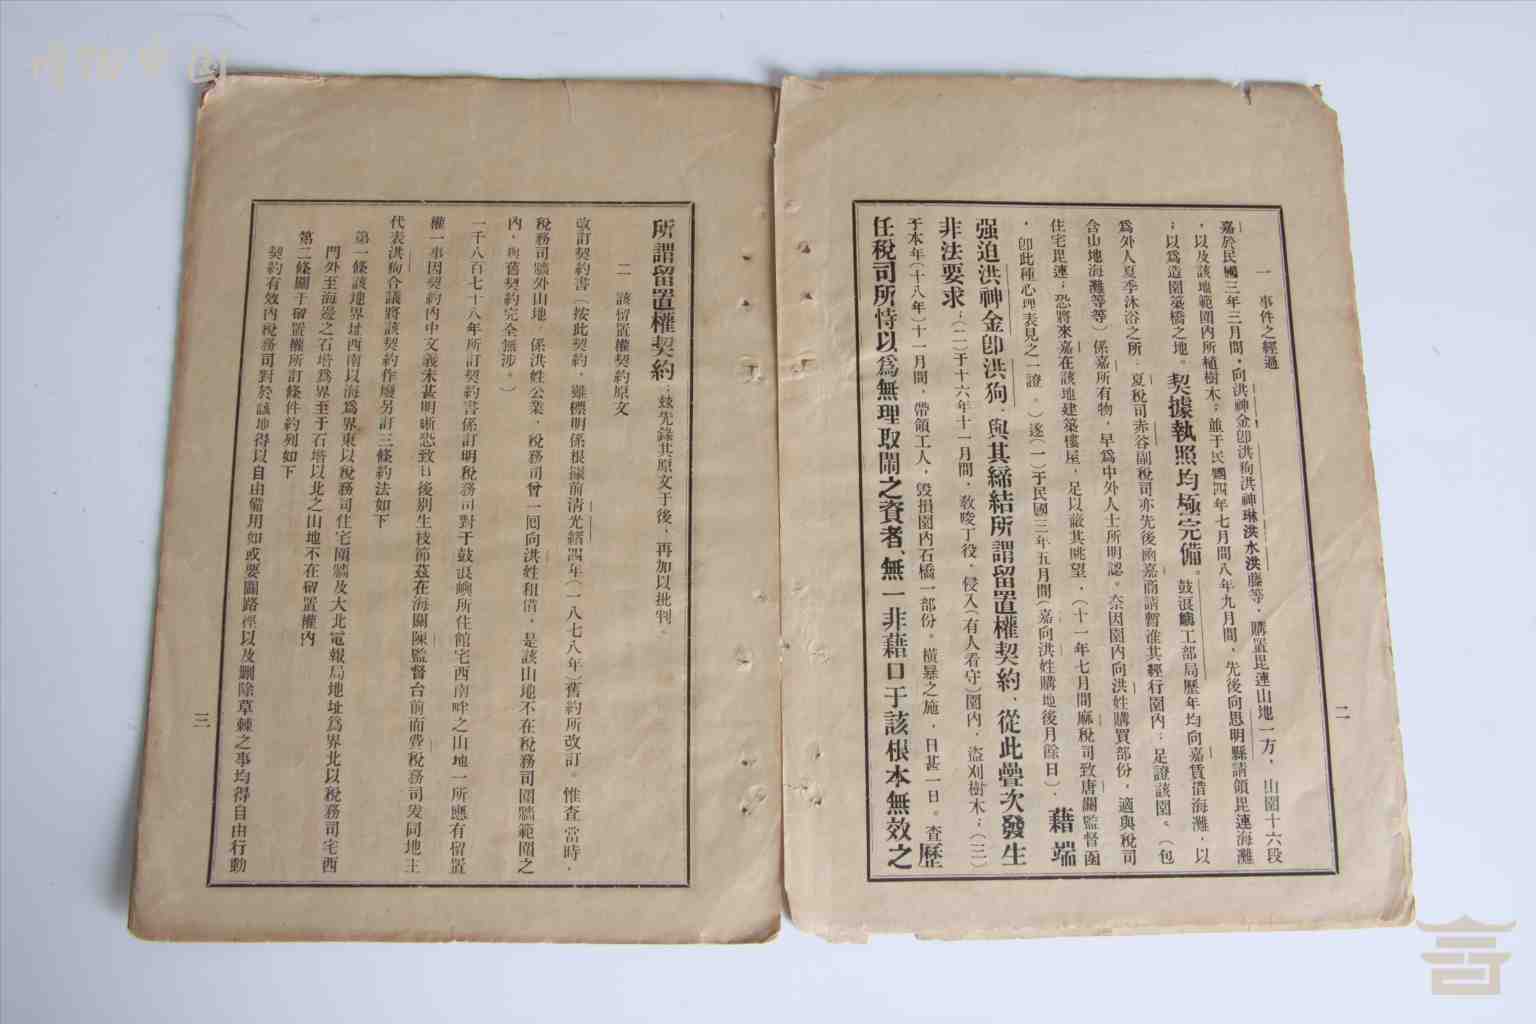 一　事件之經過
嘉於民國三年三月間，向洪神金卽洪狗洪神琳洪水洪藤等，購置毘連山地一方，山園十六段
，以及該地範圍內所植樹木；並于民國四年七月間八年九月間，先後向思明縣請領毘連海灘
；以爲造園築橋之地。契據執照均極完備。鼓浪嶼工部局歷年均向嘉賃借海灘，以
爲外人夏季沐浴之所；夏稅司赤谷副稅司亦先後函嘉商請暫准其經行園內；足證該園。（包
含山地海灘等等）係嘉所有物，早爲中外人士所明認。奈因園內向洪姓購買部份，適與稅司
住宅毘連；恐將來嘉在該地建築樓屋，足以蔽其眺望，（十一年七月間麻稅司致唐關監督函
，卽此種心理表見之一證。）遂（一）于民國三年五月間（嘉向洪姓購地後月餘日）、藉端
强迫洪神金卽洪狗，與其締結所謂留置權契約，從此疊次發生
非法要求；（二）于十六年十一月間，敎唆丁役，侵入（有人看守）園內，盜刈樹木；（三）
于本年（十八年）十一月間，帶領工人，毀損園內石橋一部份。橫暴之施，日甚一日。查歷
任稅司所恃以爲無理取鬧之資者、無一非藉口于該根本無效之
二
所謂留置權契約；玆先錄其原文于後，再加以批判。
二　該留置權契約原文
改訂契約書（按此契約，雖標明係根據前清光緒四年（一八七八年）舊約所改訂。惟查當時，
稅務司牆外山地，係洪姓公業，稅務司曾一囘向洪姓租借，是該山地不在稅務司圍牆範圍之
內，與舊契約完全無涉。）
一千八百七十八年所訂契約書係訂明稅務司對于鼓浪嶼所住館宅西南畔之山地一所應有留置
權一事因契約內中文義未甚明晰恐致日後別生枝節茲在海關陳監督台前而費稅務司发同地主
代表洪狗合議將該契約作廢另訂三條約法如下
第一條該地界址西南以海爲界東以稅務司住宅圍牆及大北電報局地址爲界北以稅務司宅西
門外至海邊之石塔爲界至于石塔以北之山地不在留置權內
第二條關于留置權所訂條件約列如下
契約有效內稅務司對於該地得以自由備用如或要闢路徑以及刪除草棘之事均得自由行動
三